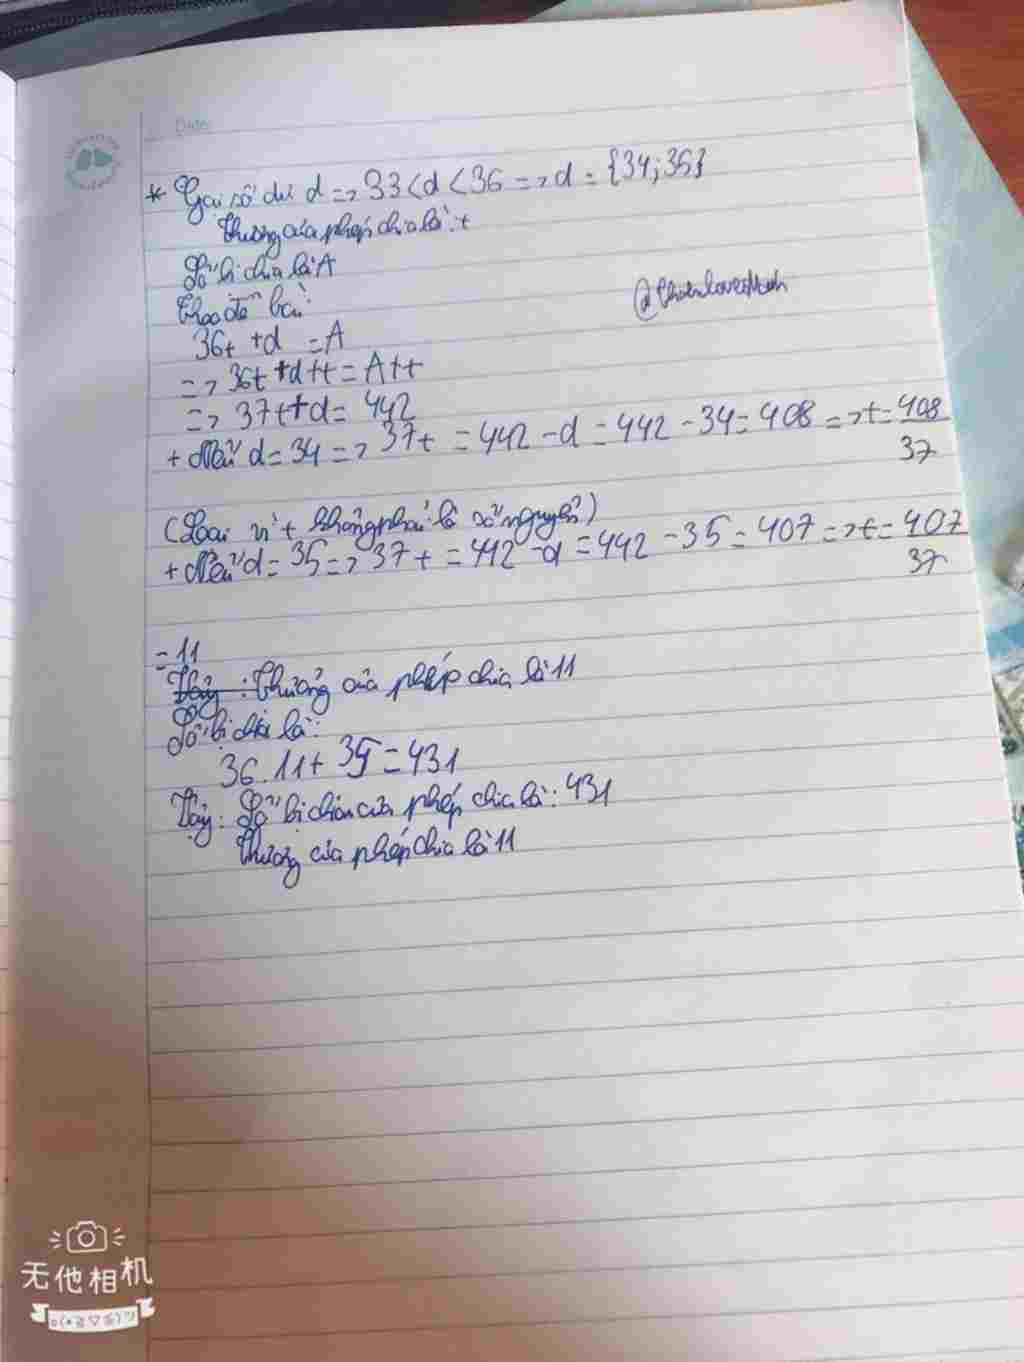 Date:
* Gọi số dư d => 33 < d < 36 => d = {34; 35}
Thương của phép chia là: t
Số bị chia là A
Theo đề bài:
36t + d = A
=> 36t + d + t = A + t
=> 37t + d = 442
+ Nếu d = 34 => 37t = 442 - d = 442 - 34 = 408 => t = 408/37
(Loại vì t không phải là số nguyên)
+ Nếu d = 35 => 37t = 442 - d = 442 - 35 = 407 => t = 407/37
= 11
Vậy: Thương của phép chia là 11
Số bị chia là:
36.11 + 35 = 431
Vậy: Số bị chia của phép chia là: 431
Thương của phép chia là 11
无他相机